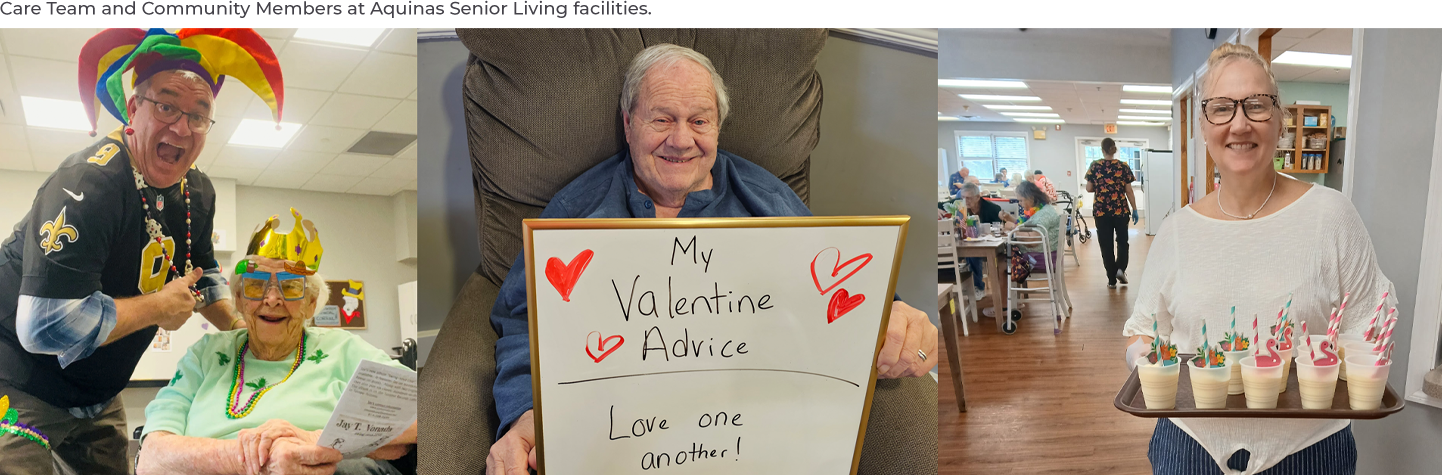 Care Team and Community Members at Aquinas Senior Living facilities.
9
9
My
Valentine
Advice
Love one
another!
Jay T.